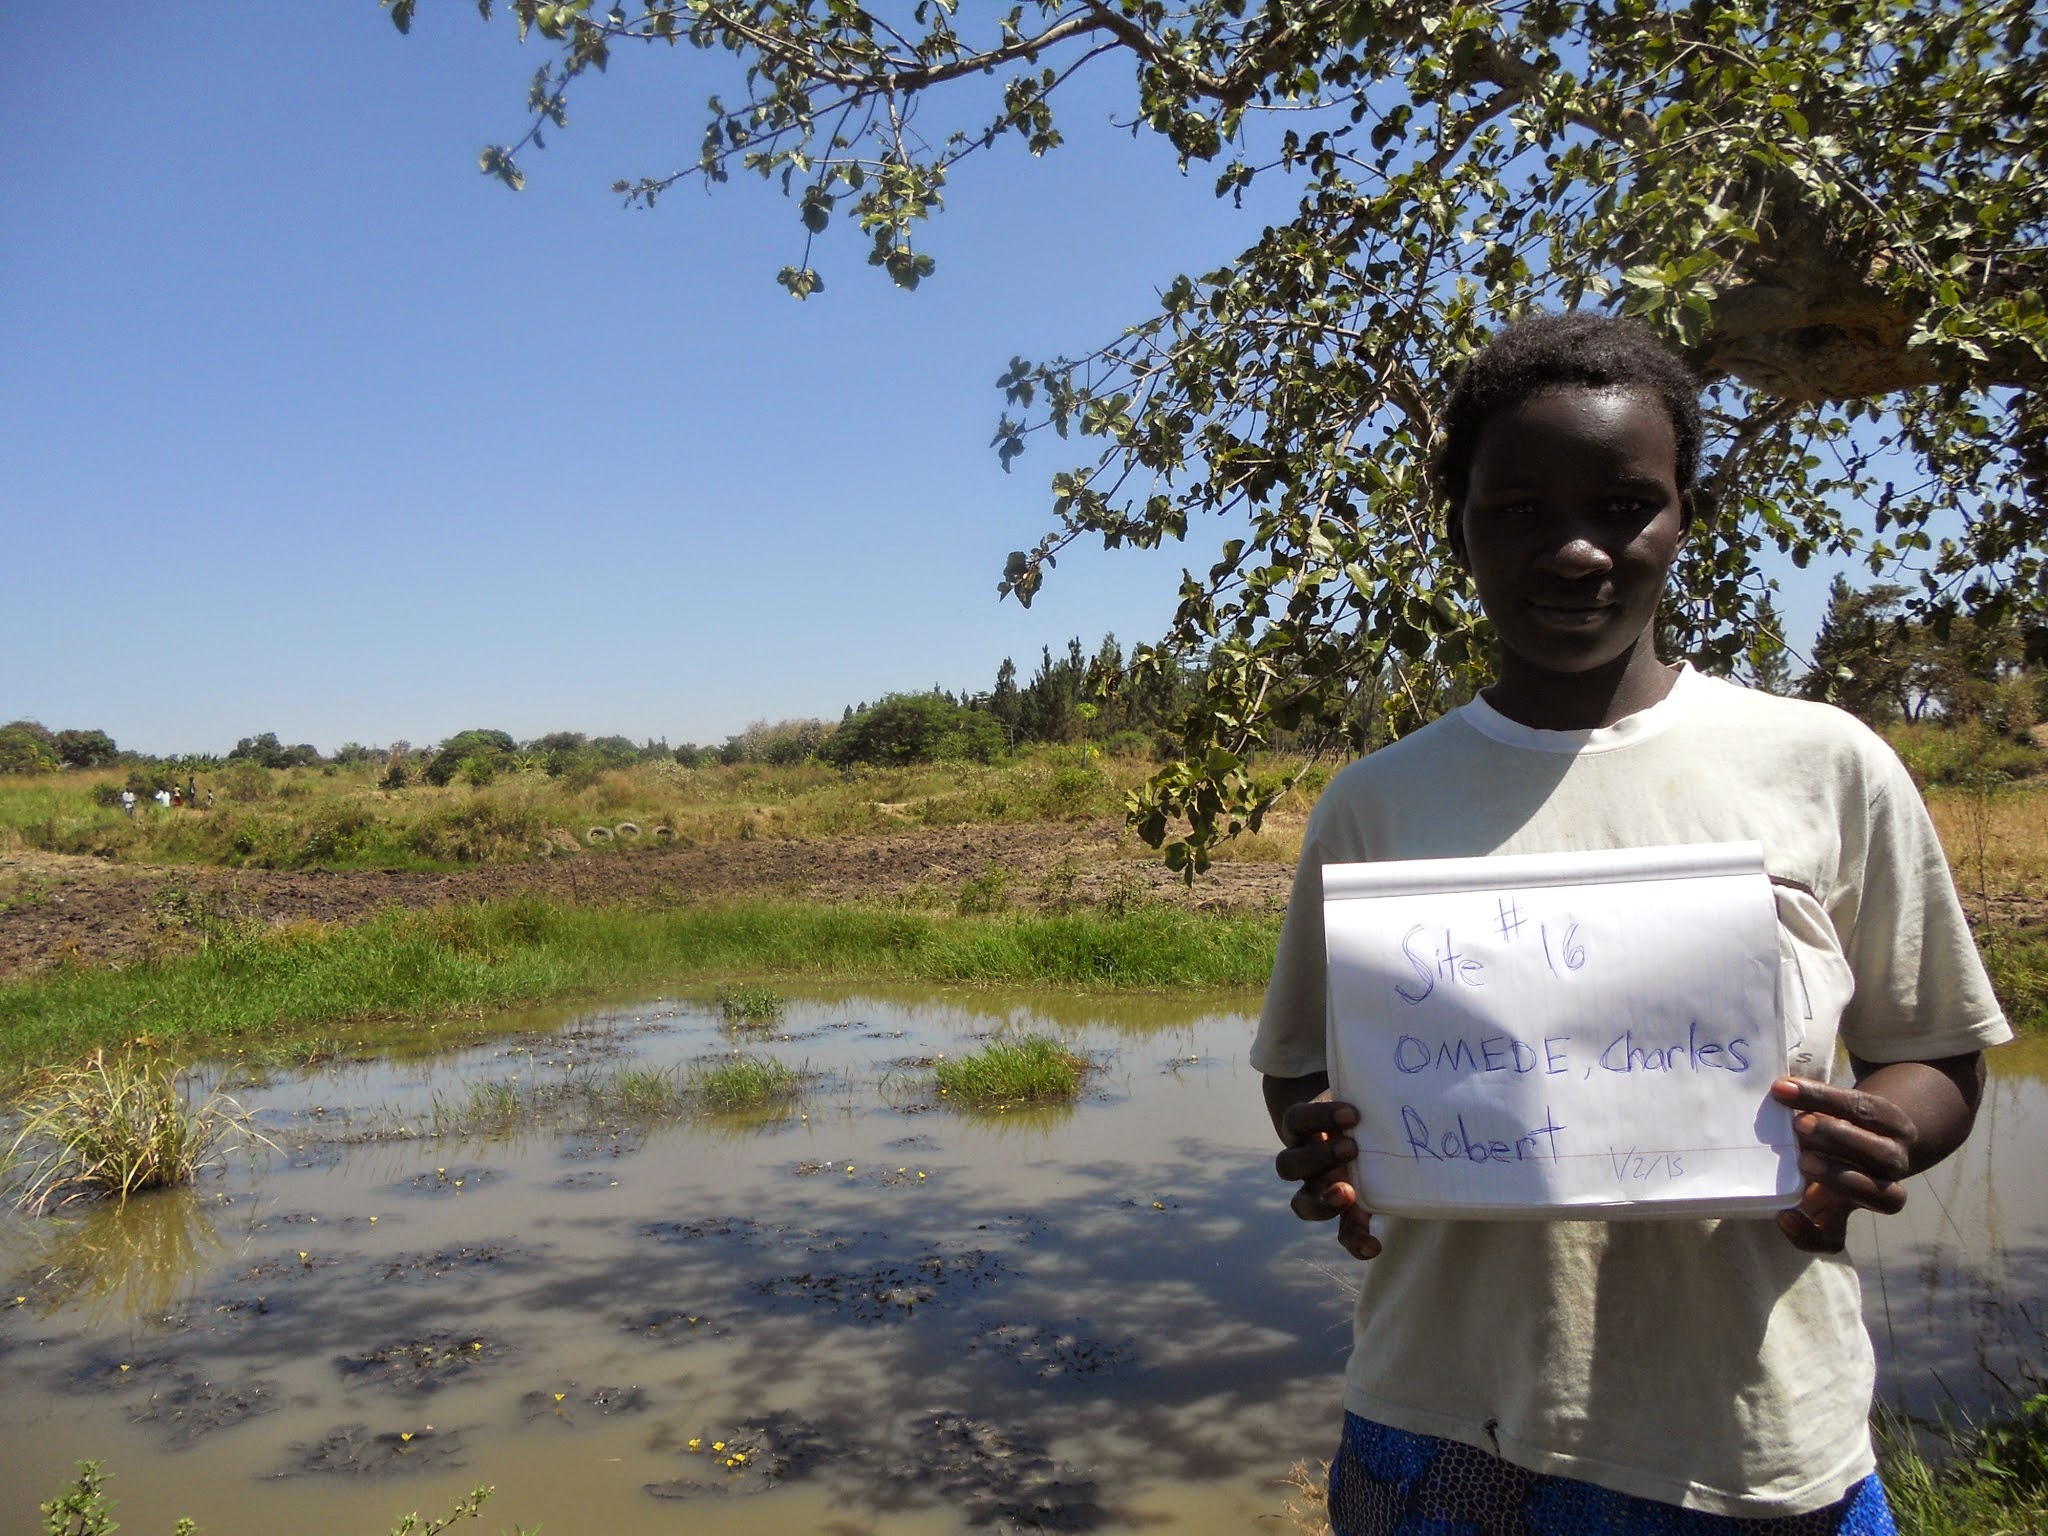 Site # 16
OMEDE, Charles
Robert 1/2/15
s